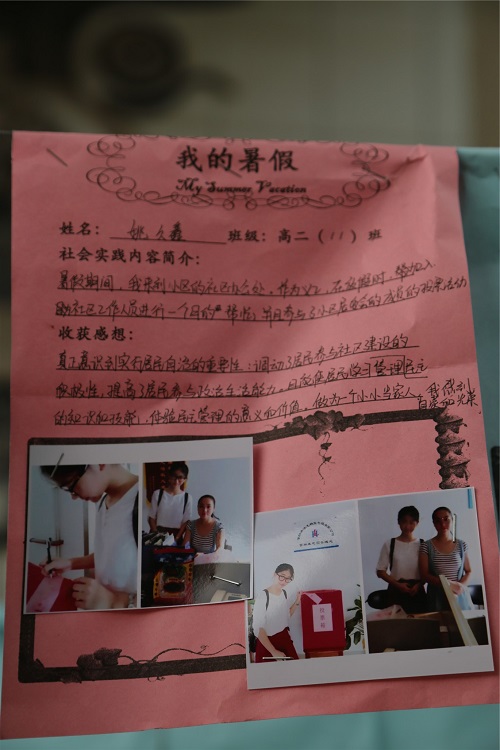 我的暑假
My Summer Vacation
姓名: 姚久鑫 班级: 高二 (11) 班
社会实践内容简介:
暑假期间, 我来到小区的社区办公处, 作为义工, 在
助社区工作人员进行一个月的 帮忙, 并且参与了小区居委会的成员的投票活动
收获感想:
真正意识到实行居民自治的重要性: 调动了居民参与社区建设的
积极性, 提高了居民参与政治生活能力, 且应使居民学习管理民主
的知识和技能, 体验民主管理的意义和价值, 做为一个小小当家人, 我感到
自豪和光荣
投票箱